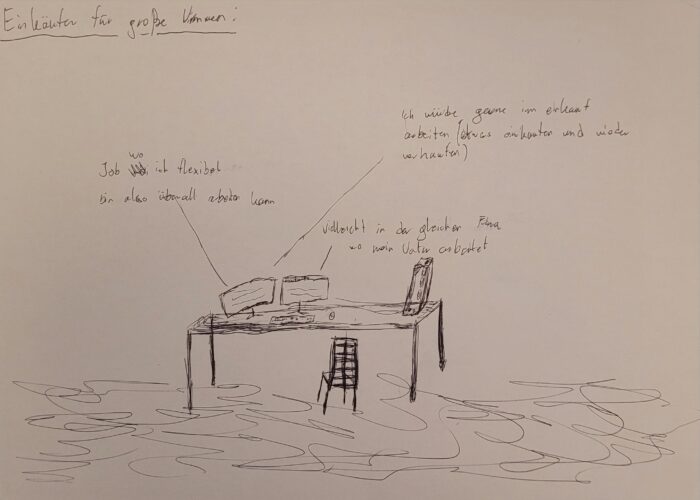 Einkäufer für große Firmen:
Ich würde gerne im einkauf
arbeiten (etwas einkaufen und wieder
verkaufen)
Job wo ich flexibel
bin also überall arbeiten kann
vielleicht in der gleichen Firma
wo mein Vater arbeitet